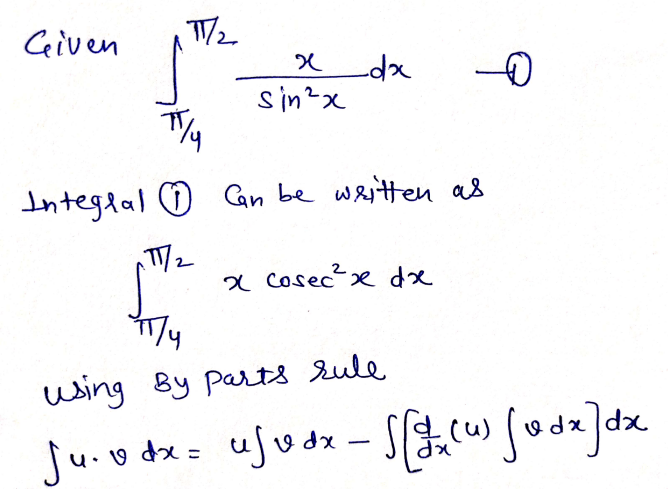 Given ∫_{π/4}^{π/2} x/sin²x dx —①
Integral ① Can be written as
∫_{π/4}^{π/2} x cosec²x dx
using By parts rule
∫u.v dx = u∫v dx – ∫[d/dx(u) ∫v dx]dx